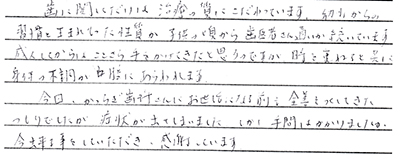 歯に関してだけは 治療の質にこだわっています 幼少からの
習慣と生まれもった性質か 子供の頃から歯医者さん通いが続いています
成人してからは ここさら手をかけてきたと思うのですが 時を重ねると共に
身体の不調が 如実にあらわれます
今日、からさき歯科さんにお世話になる前に全善をつくしてきた
つもりでしたが 症状が出てしまいました しかし 手間はかかりましたが
今出来る事をしていただき、感謝しています